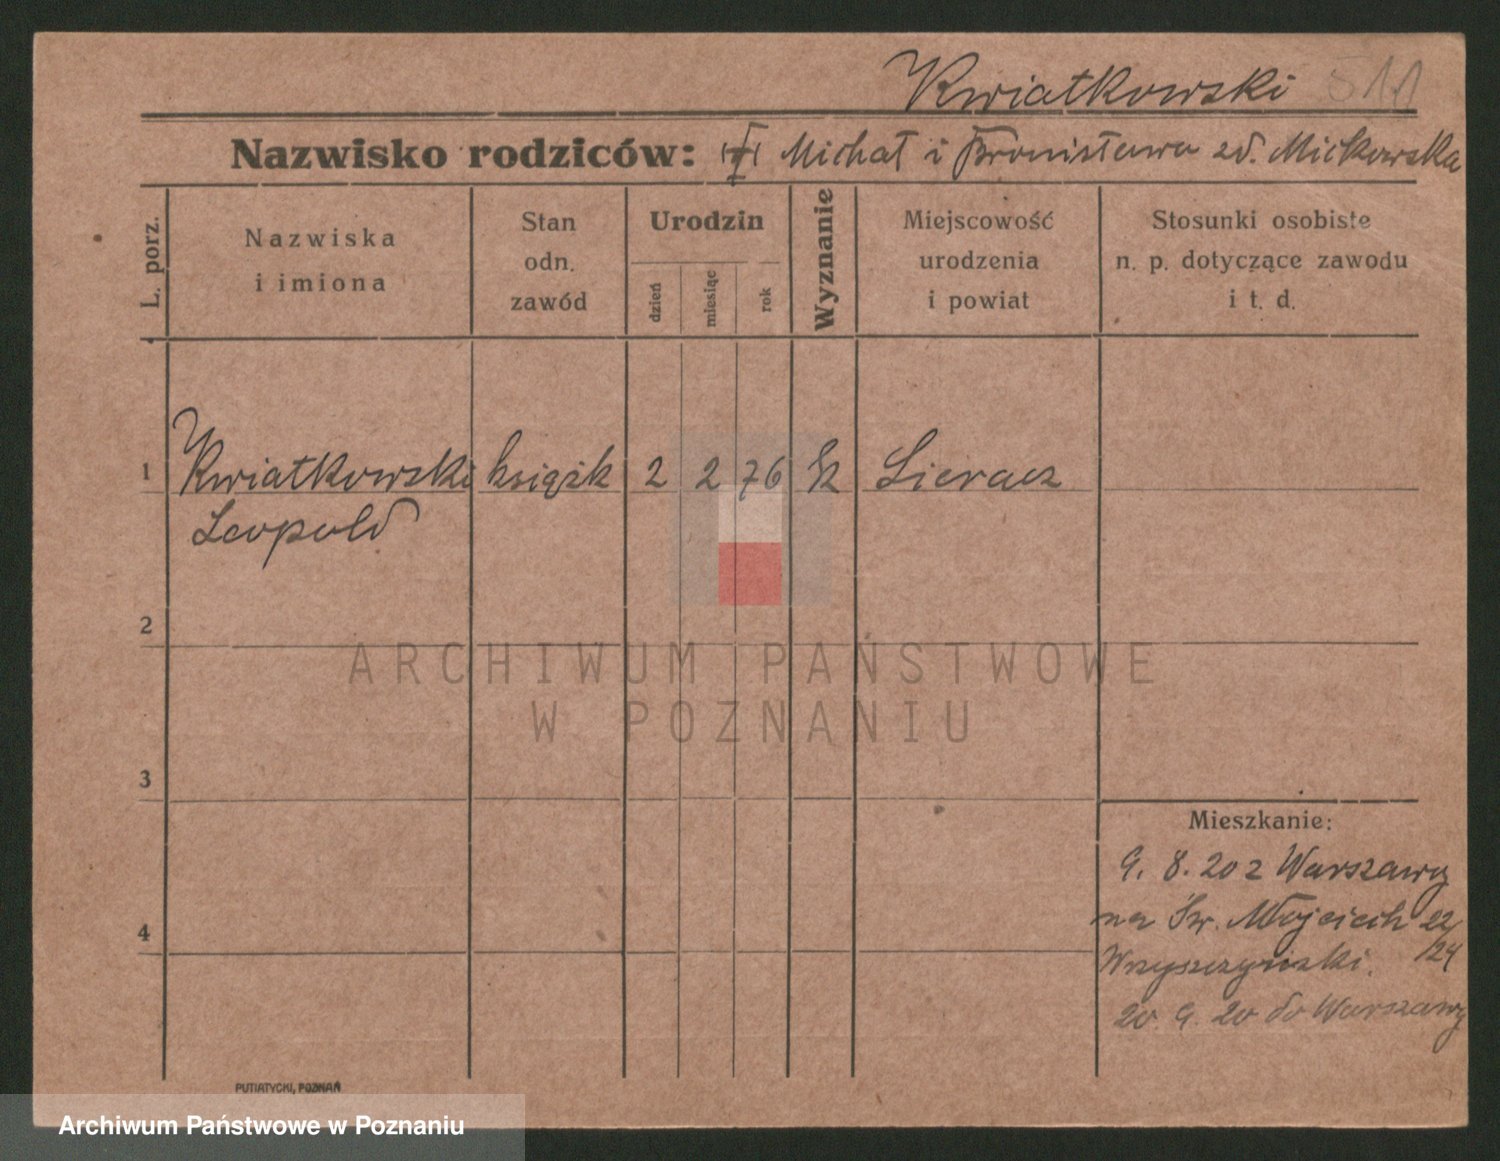 Kwiatkowski 511
Nazwisko rodziców: Michał i Bronisława zd. Mićkowska
L. porz.
Nazwiska
i imiona
Stan
odn.
zawód
Urodzin
dzień
miesiąc
rok
Wyznanie
Miejscowość
urodzenia
i powiat
Stosunki osobiste
n. p. dotyczące zawodu
i t. d.
1 Kwiatkowski książk 2 2 76 Sieracz
Leopold
2
3
4
Mieszkanie:
9. 8. 20 z Warszawy
na Św. Wojciech 22/24
Wrzyszczyński.
20. 9. 20 do Warszawy
PUTIATYCKI, POZNAŃ
ARCHIWUM PAŃSTWOWE
W POZNANIU
Archiwum Państwowe w Poznaniu